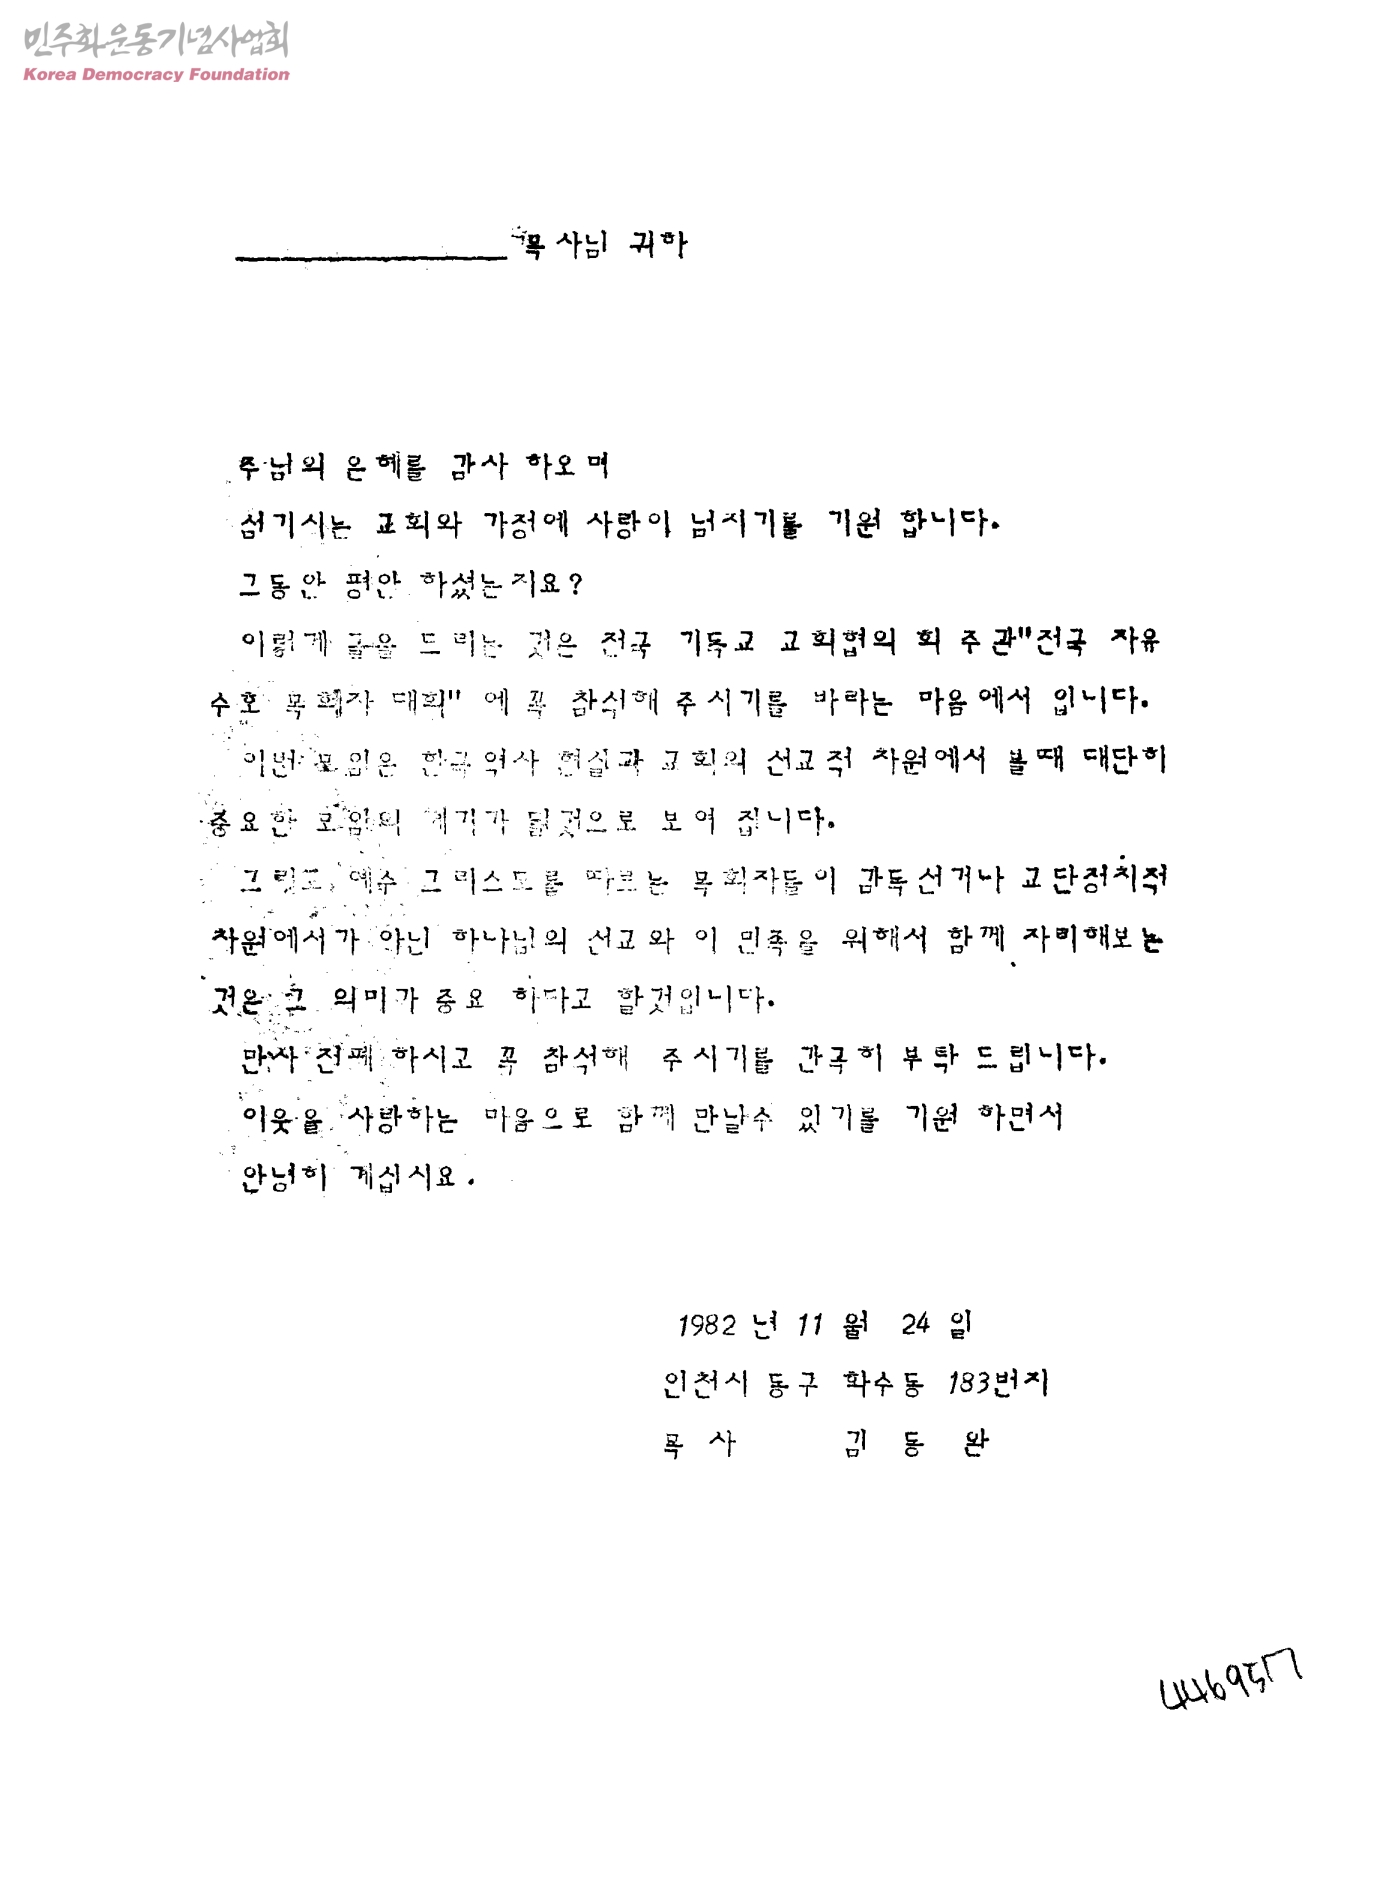 민주화운동기념사업회
Korea Democracy Foundation
목사님 귀하
주님의 은혜를 감사 하오며
섬기시는 교회와 가정에 사랑이 넘치기를 기원 합니다.
그동안 평안 하셨는지요?
이렇게 글을 드리는 것은 전국 기독교 교회협의 회 주관"전국 자유
수호 목회자 대회" 에 꼭 참석해 주시기를 바라는 마음에서 입니다.
이번 모임은 한국역사 현실과 교회의 선교적 차원에서 볼때 대단히
중요한 모임의 계기가 될것으로 보여 집니다.
그리고 예수 그리스도를 따르는 목회자들이 감독선거나 교단정치적
차원에서가 아닌 하나님의 선교와 이 민족을 위해서 함께 자리해보는
것은 그 의미가 중요 하다고 할것입니다.
만사 전폐 하시고 꼭 참석해 주시기를 간곡히 부탁 드립니다.
이웃을 사랑하는 마음으로 함께 만날수 있기를 기원 하면서
안녕히 계십시요.
1982 년 11 월 24 일
인천시 동구 화수동 183번지
목 사 김 동 완
446957